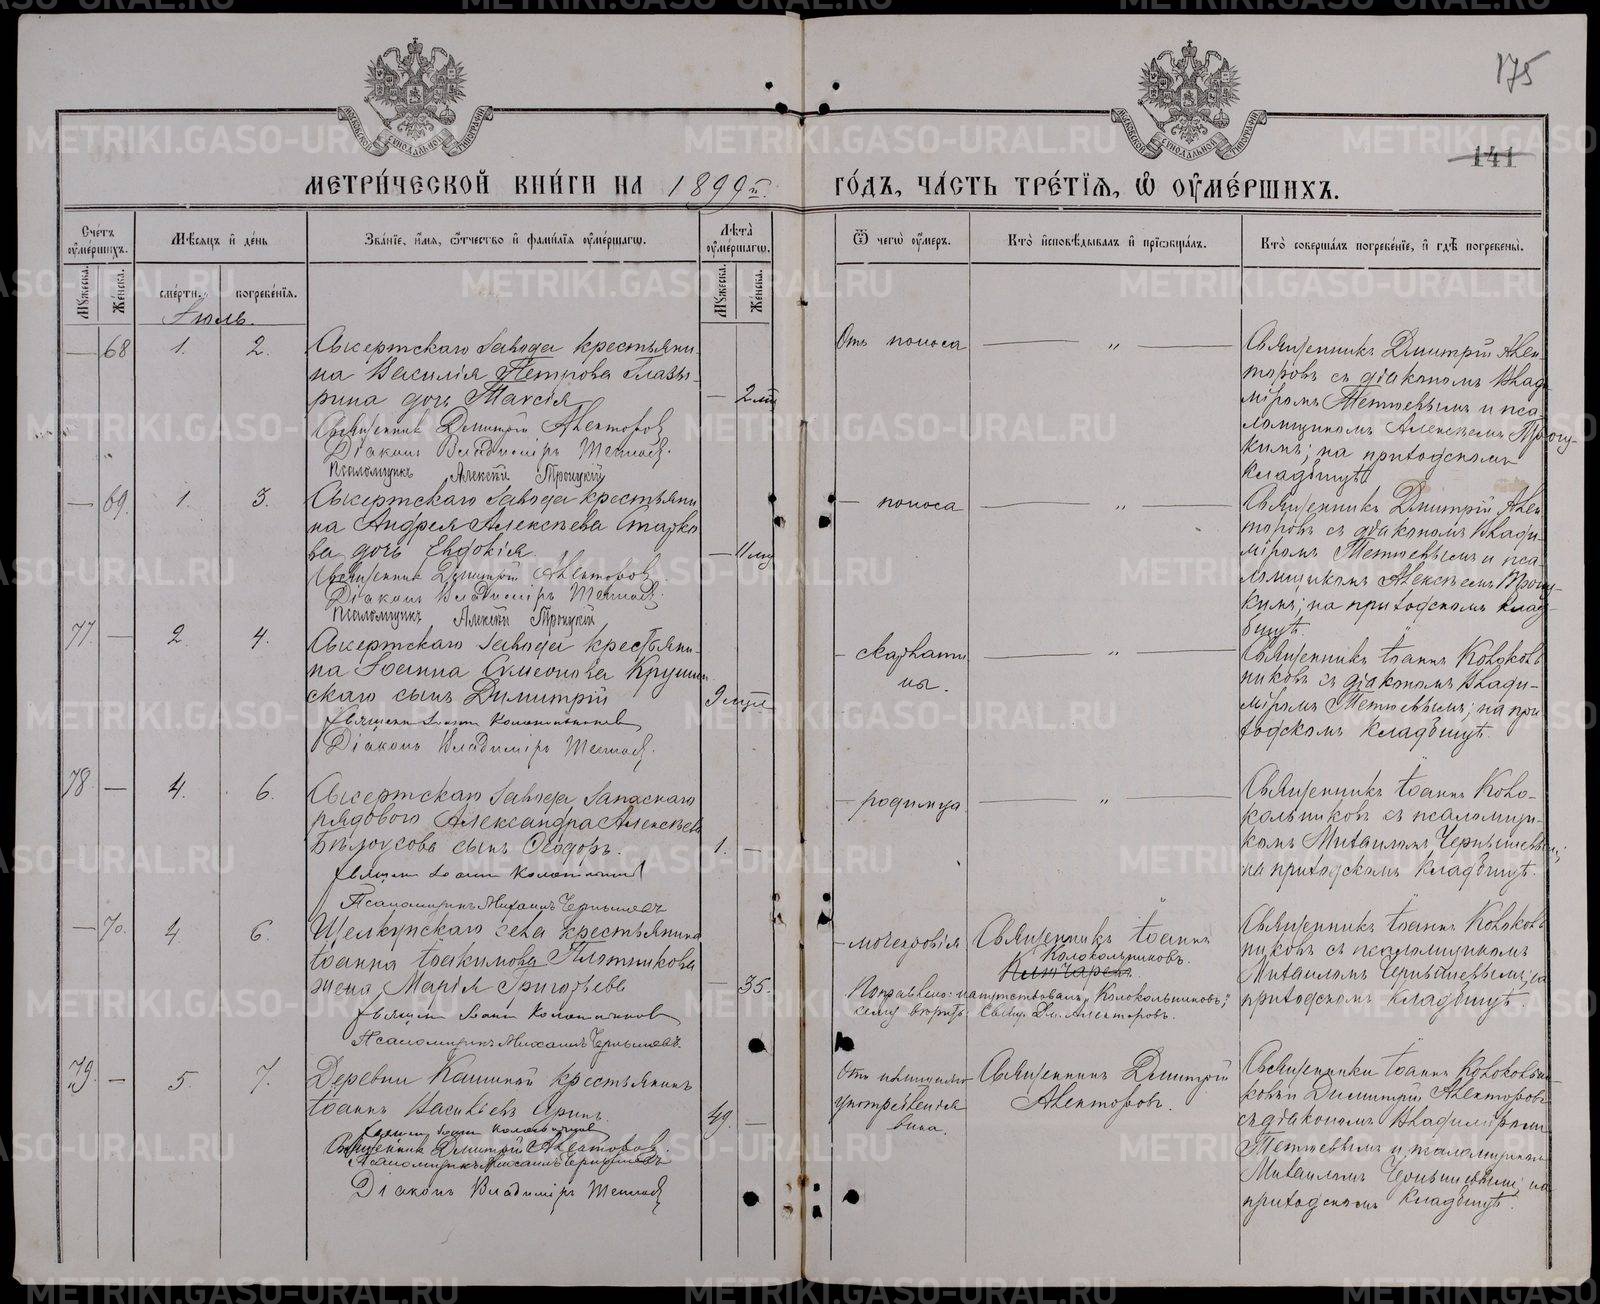 175
141
МЕТРИ́ЧЕСКОЙ КНИ́ГИ НА 1899й
ГО́ДЪ, ЧА́СТЬ ТРЕ́ТІѦ, Ѡ҆ ОУ҆МЕ́РШИХЪ.
Сче́тъ оу҆ме́ршихъ.
Мꙋ́жеска.
Же́нска.
Мѣ́сѧцъ и҆ де́нь
сме́рти.
погребе́нїѧ.
Зва́нїе, и҆́мѧ, ѻ҆́тчество и҆ фами́лїѧ оу҆ме́ршагѡ.
Лѣ́та оу҆ме́ршагѡ.
Мꙋ́жеска.
Же́нска.
Ѿ чегѡ̀ оу҆́меръ.
Кто̀ и҆сповѣ́дывалъ и҆ прїѡбща́лъ.
Кто̀ соверша́лъ погребе́нїе, и҆ гдѣ̀ погребены̀.
Іюль.
— 68 1. 2.
Сысертскаго завода крестьяни-
на Василія Петрова Глазы-
рина дочь Таисія — 2 мѣ
Священник Димитрій Авенторов
Діаконъ Владиміръ Тетюев.
Псаломщикъ Алексѣй Троицкій
Отъ поноса
— „ —
Священникъ Дмитрій Авен-
торовъ съ діакономъ Влади-
міромъ Тетюевымъ и пса-
ломщикомъ Алексѣемъ Троиц-
кимъ; на приходскомъ
кладбищѣ.
— 69. 1. 3.
Сысертскаго завода крестьяни-
на Андрея Алексѣева Старко-
ва дочь Евдокія. — 11 мц
Священник Димитрій Авенторов.
Діаконъ Владиміръ Тетюев.
Псаломщикъ Алексѣй Троицкій
— поноса
— „ —
Священникъ Дмитрій Авен-
торовъ съ діакономъ Влади-
міромъ Тетюевымъ и пса-
ломщикомъ Алексѣемъ Троиц-
кимъ; на приходскомъ клад-
бищѣ.
77. — 2. 4.
Сысертскаго завода крестьяни-
на Іоанна Симеонова
скаго сынъ Димитрій 9 мця
Священ Іоанн Колокольников
Діаконъ Владиміръ Тетюев.
— скарлати
ны.
— „ —
Священникъ Іоаннъ Колоколь
никовъ съ діакономъ Влади-
міромъ Тетюевымъ; на при
ходскомъ кладбищѣ.
78. — 4. 6.
Сысертскаго завода запаснаго
рядового Александра Алексѣева
Бѣлоусова сынъ Ѳеодоръ. 1. —
Священ Іоанн Колокольников
Псаломщикъ Михаилъ Чернышевъ
— родимца
— „ —
Священникъ Іоаннъ Коло-
кольниковъ съ псаломщи-
комъ Михаиломъ Чернышевымъ;
на приходскомъ кладбищѣ.
— 70. 4. 6.
Щелкунскаго села крестьянина
Іоанна Іоакимова Плотникова
жена Марія Григорьева — 35.
Священ Іоанн Колокольников
Псаломщикъ Михаилъ Чернышевъ.
Священникъ Іоаннъ
Колокольниковъ.
Поправлено: напутствовалъ „Колокольниковъ;"
сему вѣритъ: Свящ. Дм. Авенторовъ.
Священникъ Іоаннъ Колоколь
никовъ съ псаломщикомъ
Михаиломъ Чернышевымъ; на
приходскомъ кладбищѣ.
79. — 5. 7.
Деревни Кашиной крестьянинъ
Іоаннъ Васильевъ 49. —
Священ Іоанн Колокольников
Священник Димитрій Авенторов.
Псаломщикъ Михаилъ Чернышевъ
Діаконъ Владиміръ Тетюев
Отъ излишняго
употребленія
вина.
Священникъ Дмитрій
Авенторовъ.
Священники Іоаннъ Колокольни-
ковъ и Димитрій Авенторовъ
съ діакономъ Владиміромъ
Тетюевымъ и псаломщикомъ
Михаиломъ Чернышевымъ; на
приходскомъ кладбищѣ.
METRIKI.GASO-URAL.RU